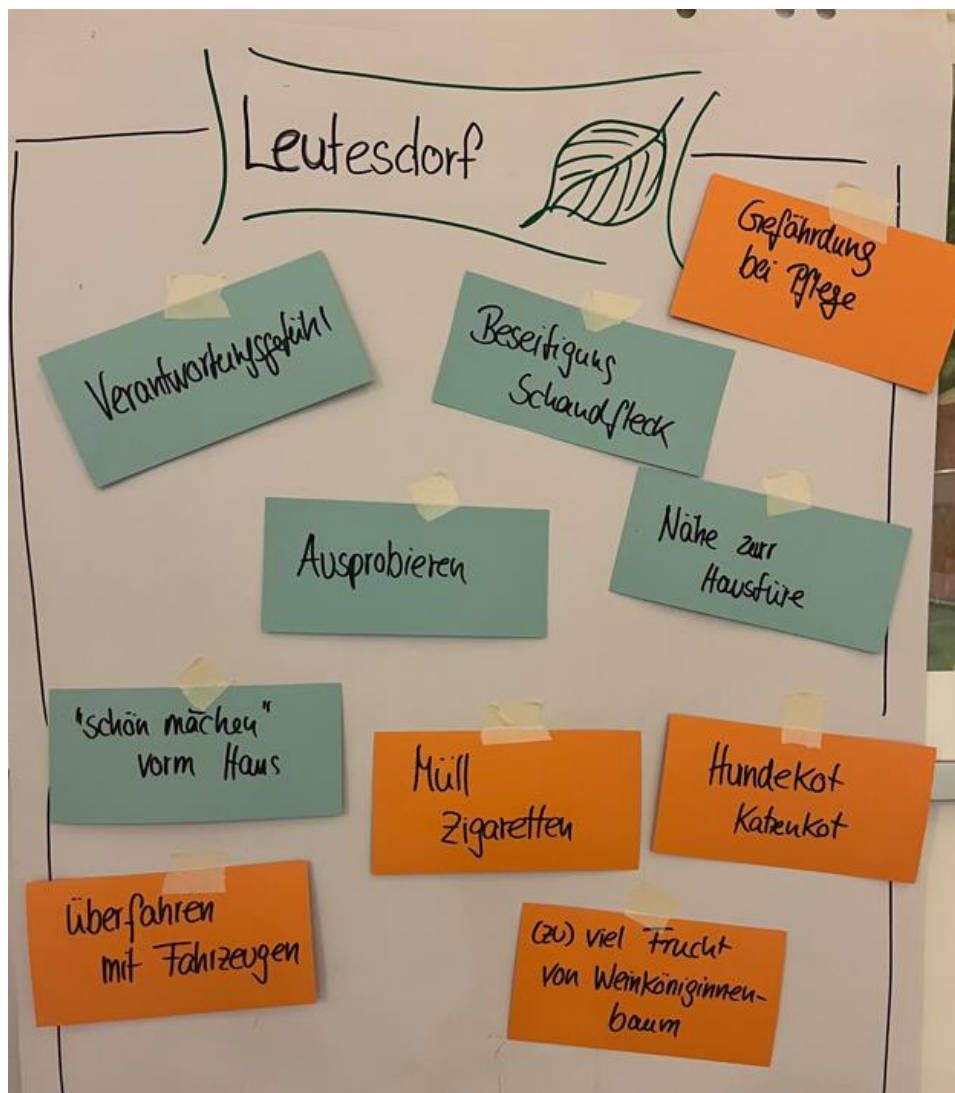 Leutesdorf
Gefährdung
bei Pflege
Verantwortungsgefühl
Beseitigung
Schandfleck
Ausprobieren
Nähe zurr
Haustüre
"schön machen"
vorm Haus
Müll
Zigaretten
Hundekot
Katzenkot
überfahren
mit Fahrzeugen
(zu) viel Frucht
von Weinköniginnen-
baum